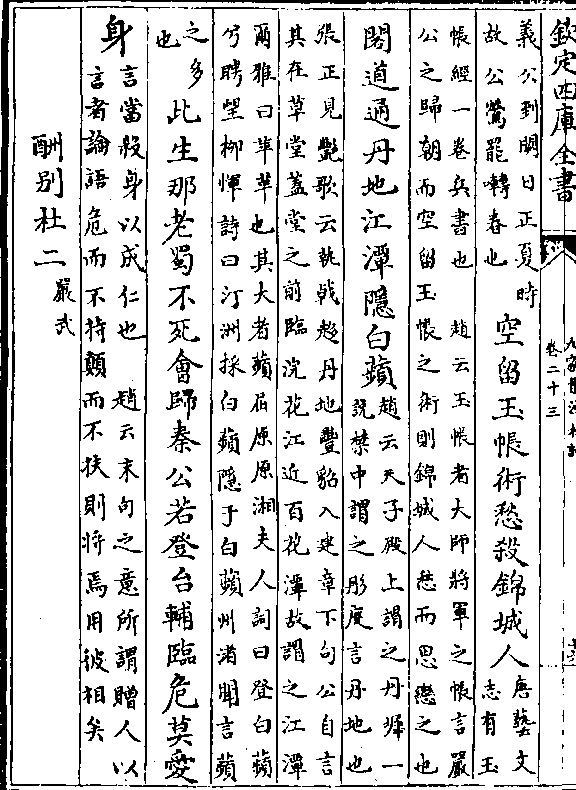 欽定四庫全書
九家集注杜詩
卷二十三
義公到闕日正夏時
故公鶯罷囀春也
空留玉帳術愁殺錦城人
唐藝文
志有玉
帳經一卷兵書也　趙云玉帳者大師將軍之帳言嚴
公之歸朝而空留玉帳之術則錦城人愁而思戀之也
閣道通丹地江潭隱白蘋
趙云天子殿上謂之丹墀一
説禁中謂之彤庭言丹地也
張正見艷歌云執戟趨丹地豐貂入建章下句公自言
其在草堂蓋堂之前臨浣花江近百花潭故謂之江潭
爾雅曰苹萃也其大者蘋屈原原湘夫人詞曰登白蘋
兮聘望柳惲詩曰汀洲採白蘋隱于白蘋州渚閒言蘋
之多
也
此生那老蜀不死會歸秦公若登台輔臨危莫愛
身
言當殺身以成仁也　趙云末句之意所謂贈人以
言者論語危而不持顛而不扶則將焉用彼相矣
酬别杜二
嚴武